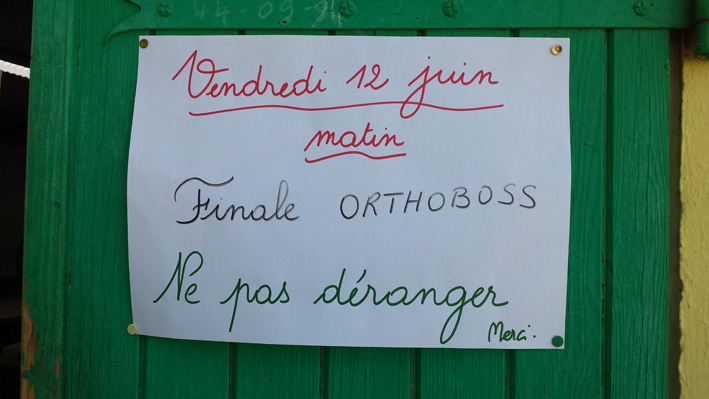 44-09-24
Vendredi 12 juin
matin
Finale ORTHOBOSS
Ne pas déranger
Merci.